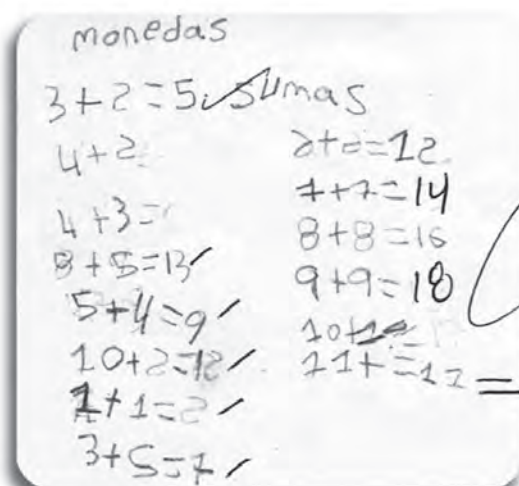 monedas
3+2=5 ✓ sumas
4+2
4+3=
8+5=13 ✓
5+4=9 ✓
10+2=12 ✓
1+1=2 ✓
3+5=7 ✓
=12
7+7=14
8+8=16
9+9=18
10+
11+ =